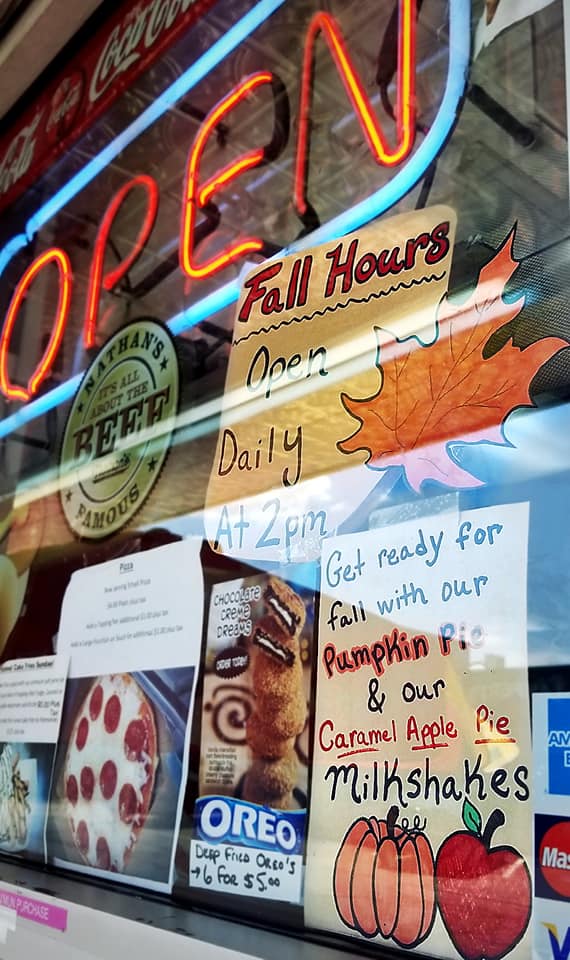 Coca-Cola
OPEN
Fall Hours
Open
Daily
At 2pm
NATHAN'S
IT'S ALL
ABOUT THE
BEEF
FAMOUS
Get ready for
fall with our
Pumpkin Pie
& our
Caramel Apple Pie
Milkshakes
Pizza
Now serving Fried Pizza
Add a Topping for additional $1.00 plus tax
CHOCOLATE
CREME
DREAMS
ORDER TODAY!
OREO
DEEP FRIED OREO'S
→ 6 FOR $5.00
Cake Fries Sundae!
AM
E
Mas
V
PURCHASE